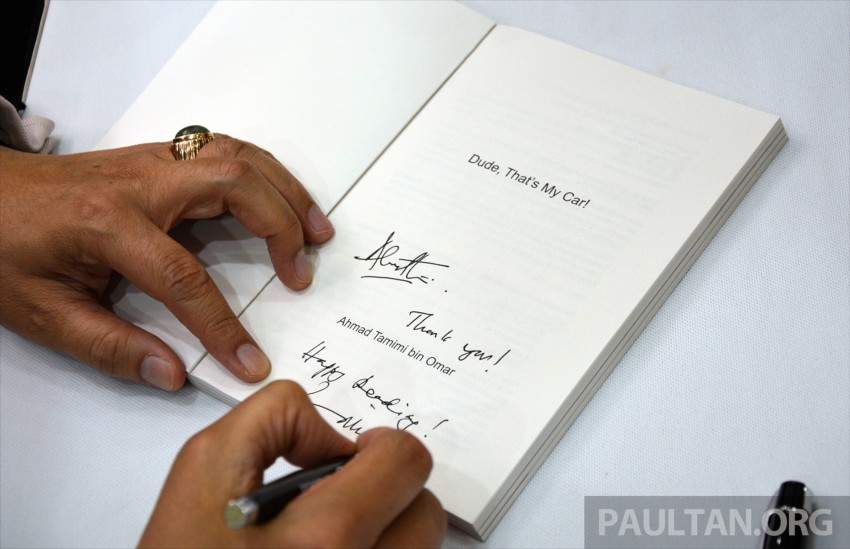 Dude, That's My Car!
Thank you!
Ahmad Tamimi bin Omar
Happy Reading!
PAULTAN.ORG